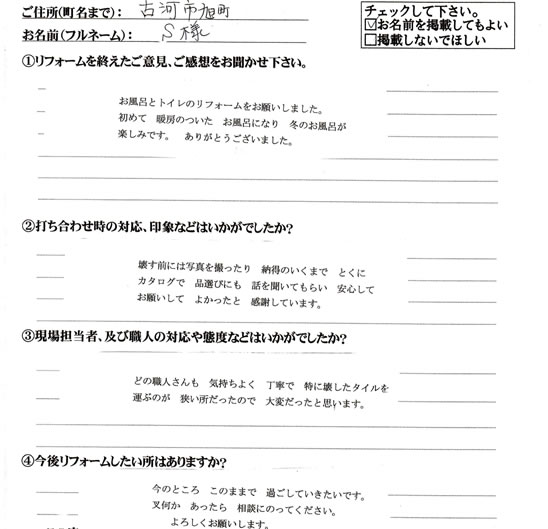 ご住所(町名まで): 古河市旭町
お名前(フルネーム): S様
チェックして下さい。
☑お名前を掲載してもよい
□掲載しないでほしい
①リフォームを終えたご意見、ご感想をお聞かせ下さい。
お風呂とトイレのリフォームをお願いしました。
初めて 暖房のついた お風呂になり 冬のお風呂が
楽しみです。 ありがとうございました。
②打ち合わせ時の対応、印象などはいかがでしたか?
壊す前には写真を撮ったり 納得のいくまで とくに
カタログで 品選びにも 話を聞いてもらい 安心して
お願いして よかったと 感謝しています。
③現場担当者、及び職人の対応や態度などはいかがでしたか?
どの職人さんも 気持ちよく 丁寧で 特に壊したタイルを
運ぶのが 狭い所だったので 大変だったと思います。
④今後リフォームしたい所はありますか?
今のところ このままで 過ごしていきたいです。
又何か あったら 相談にのってください。
よろしくお願いします。